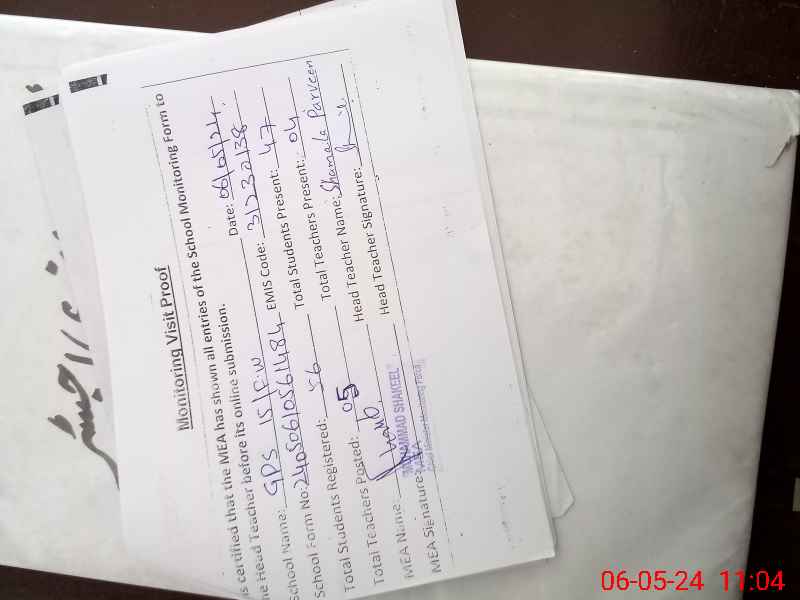 Monitoring Visit Proof
is certified that the MEA has shown all entries of the School Monitoring Form to
he Head Teacher before its online submission.
Date: 06/05/24
School Name: GPS 15/F.W EMIS Code: 31230138
School Form No: 24050610561484 Total Students Present: 47
Total Students Registered: 56 Total Teachers Present: 04
Total Teachers Posted: 05 Head Teacher Name: Shamala Parveen
MEA Name: Head Teacher Signature:
MUHAMMAD SHAKEEL
MEA Signature
06-05-24 11:04